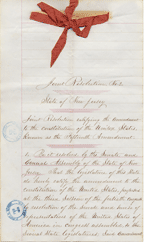 Joint Resolution No. 1
State of New Jersey.
Joint Resolution ratifying the amendment
to the constitution of the United States,
known as the Fifteenth Amendment.
Be it resolved by the Senate and
General Assembly of the State of New
Jersey, That the legislature of this State
do hereby ratify the amendment to the
constitution of the United States, proposed
at the third session of the fortieth congress
by resolution of the Senate and House of
Representatives of the United States of
America in congress assembled, to the
several State legislatures, said amendment